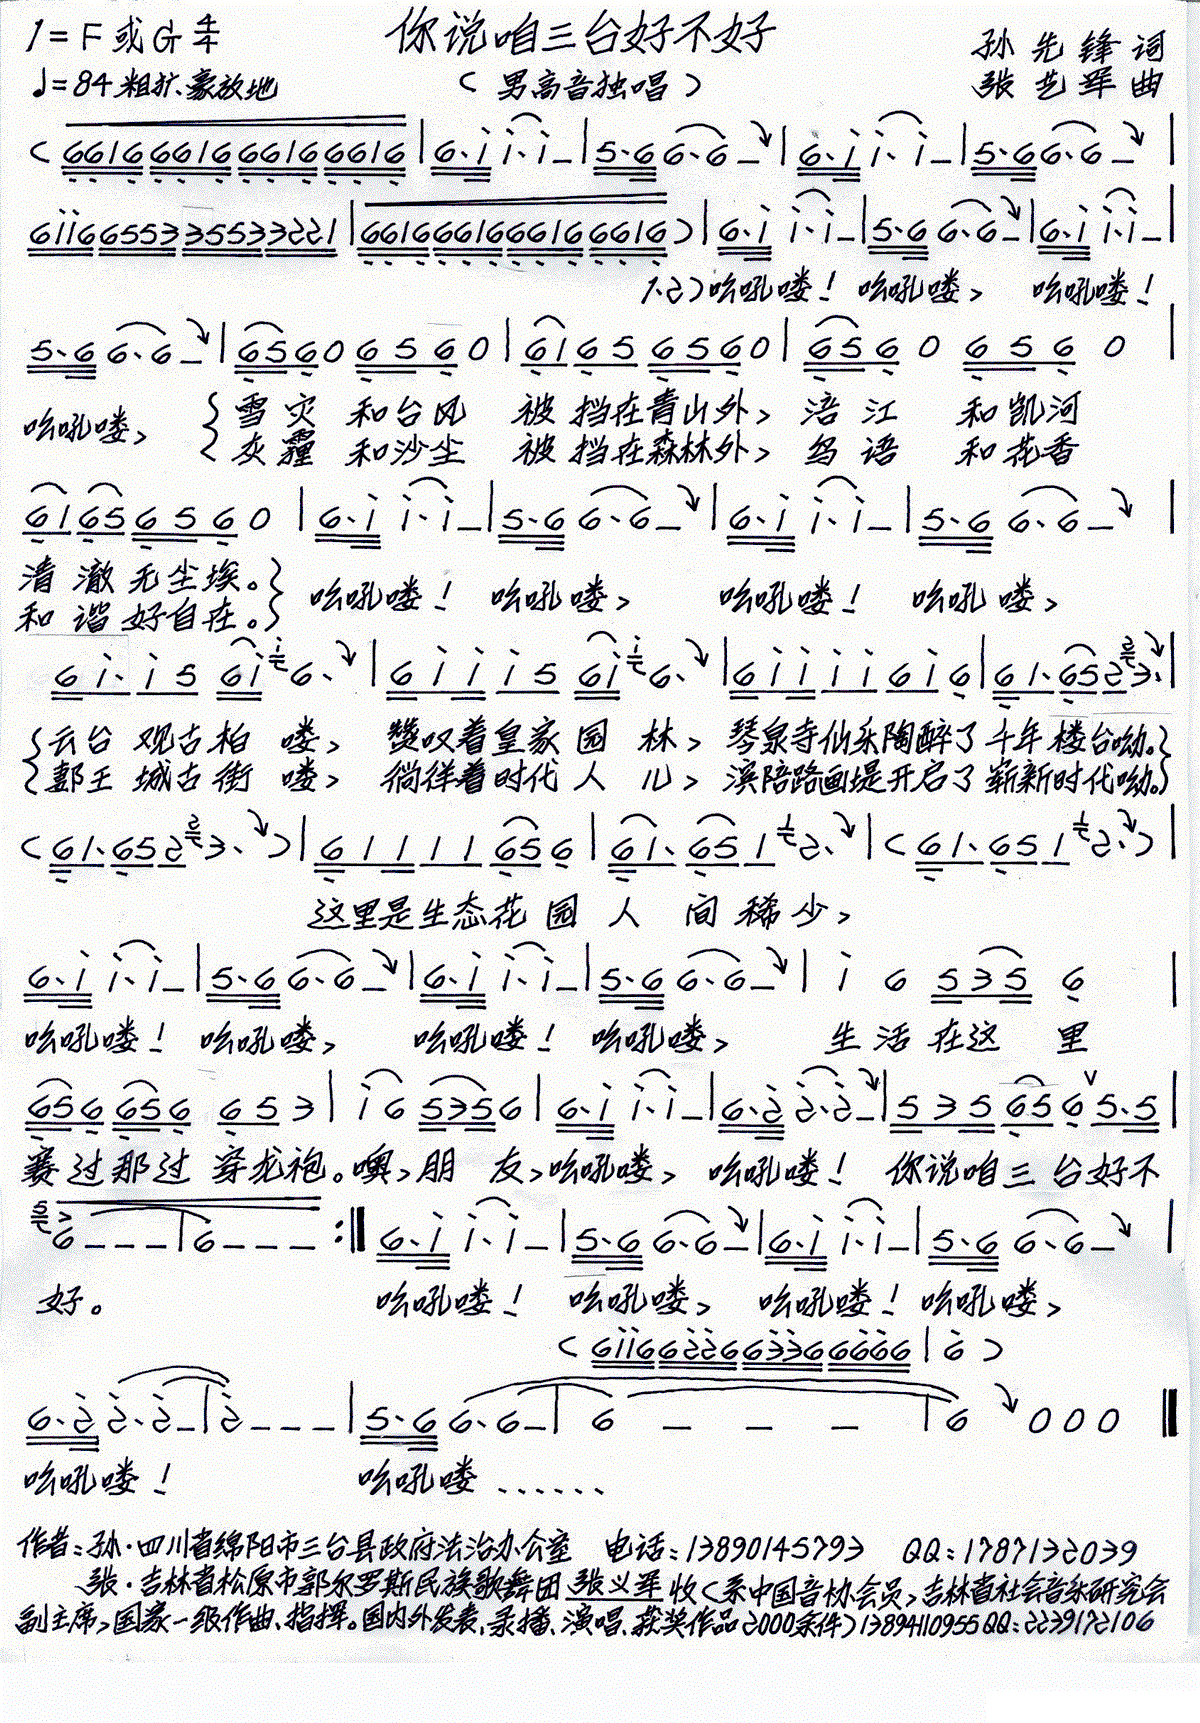 1=F或G 4/4
你说咱三台好不好
孙先锋 词
♩=84 粗犷、豪放地
(男高音独唱)
张艺军 曲
(6616 6616 6616 6616 | 6·i i·i – | 5·6 6·6 – | 6·i i·i – | 5·6 6·6 – |
6ii6 6553 3553 3221 | 6616 6616 6616 6616) | 6·i i·i – | 5·6 6·6 – | 6·i i·i – |
1.2.)吆吼喽! 吆吼喽, 吆吼喽!
5·6 6·6 – | 6560 6560 | 6165 6560 | 656 0 656 0 |
吆吼喽, 雪灾 和台风 被挡在青山外, 涪江 和凯河
灰霾 和沙尘 被挡在森林外, 鸟语 和花香
6165 6560 | 6·i i·i – | 5·6 6·6 – | 6·i i·i – | 5·6 6·6 – |
清澈无尘埃。 吆吼喽! 吆吼喽, 吆吼喽! 吆吼喽,
和谐好自在。
6 i·i 5 6i 6· | 6 i i i 5 6i 6· | 6 i i i i 6 i 6 | 61·65 2 3· |
云台观古柏喽, 赞叹着皇家园林, 琴泉寺仙乐陶醉了千年楼台呦。
郪王城古街喽, 徜徉着时代人儿, 滨涪路画堤开启了崭新时代呦。
(61·65 2 3·) | 6 1 1 1 1 65 6 | 61·65 1 2· | (61·65 1 2·) |
这里是生态花园人间稀少,
6·i i·i – | 5·6 6·6 – | 6·i i·i – | 5·6 6·6 – | i 6 535 6 |
吆吼喽! 吆吼喽, 吆吼喽! 吆吼喽, 生活在这里
656 656 653 | i 6 5356 | 6·i i·i – | 6·2 2·2 – | 535 656 5·5 |
赛过那过穿龙袍。噢,朋友,吆吼喽, 吆吼喽! 你说咱三台好不
6 – – – | 6 – – – :‖ 6·i i·i – | 5·6 6·6 – | 6·i i·i – | 5·6 6·6 – |
好。 吆吼喽! 吆吼喽, 吆吼喽! 吆吼喽,
(6ii6 6226 6336 6666 | 6)
6·2 2·2 – | 2 – – – | 5·6 6·6 – | 6 – – – | 6 0 0 0 ‖
吆吼喽! 吆吼喽……
作者:孙·四川省绵阳市三台县政府法治办公室 电话:13890145793 QQ:1787132039
张·吉林省松原市郭尔罗斯民族歌舞团 张义军 收(系中国音协会员,吉林省社会音乐研究会
副主席,国家一级作曲、指挥。国内外发表,录播、演唱、获奖作品2000余件)13894110955 QQ:2239172106